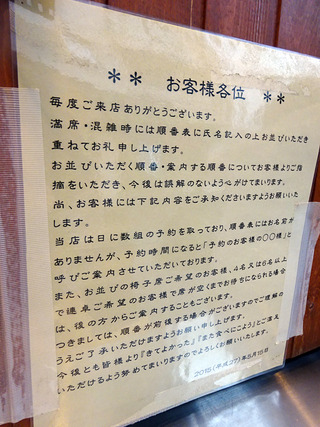 ** お客様各位 **
毎度ご来店ありがとうございます。
満席・混雑時には順番表に氏名記入の上お並びいただき
重ねてお礼申し上げます。
お並びいただく順番・案内する順番についてお客様よりご指
摘をいただき、今後は誤解のないよう心がけてまいります。
尚、お客様には下記内容をご承知くださいますようお願いいた
します。
当店は日に数組の予約を取っており、順番表にはお名前が
ありませんが、予約時間になると「予約のお客様の〇〇様」と
呼びご案内させていただいております。
また、お並びの椅子席ご希望のお客様、4名又は6名以上
で連卓ご希望のお客様で席が空くまでお待ちになられる場合
は、後の方からご案内することもございます。
つきましては、順番が前後する場合がございますのでご理解の
うえご了承いただけますようお願い申し上げます。
今後とも皆様より『きてよかった』『また食べにこよう』とご支え
いただけるよう努めてまいりますのでよろしくお願いいたします。
2015(平成27)年5月15日